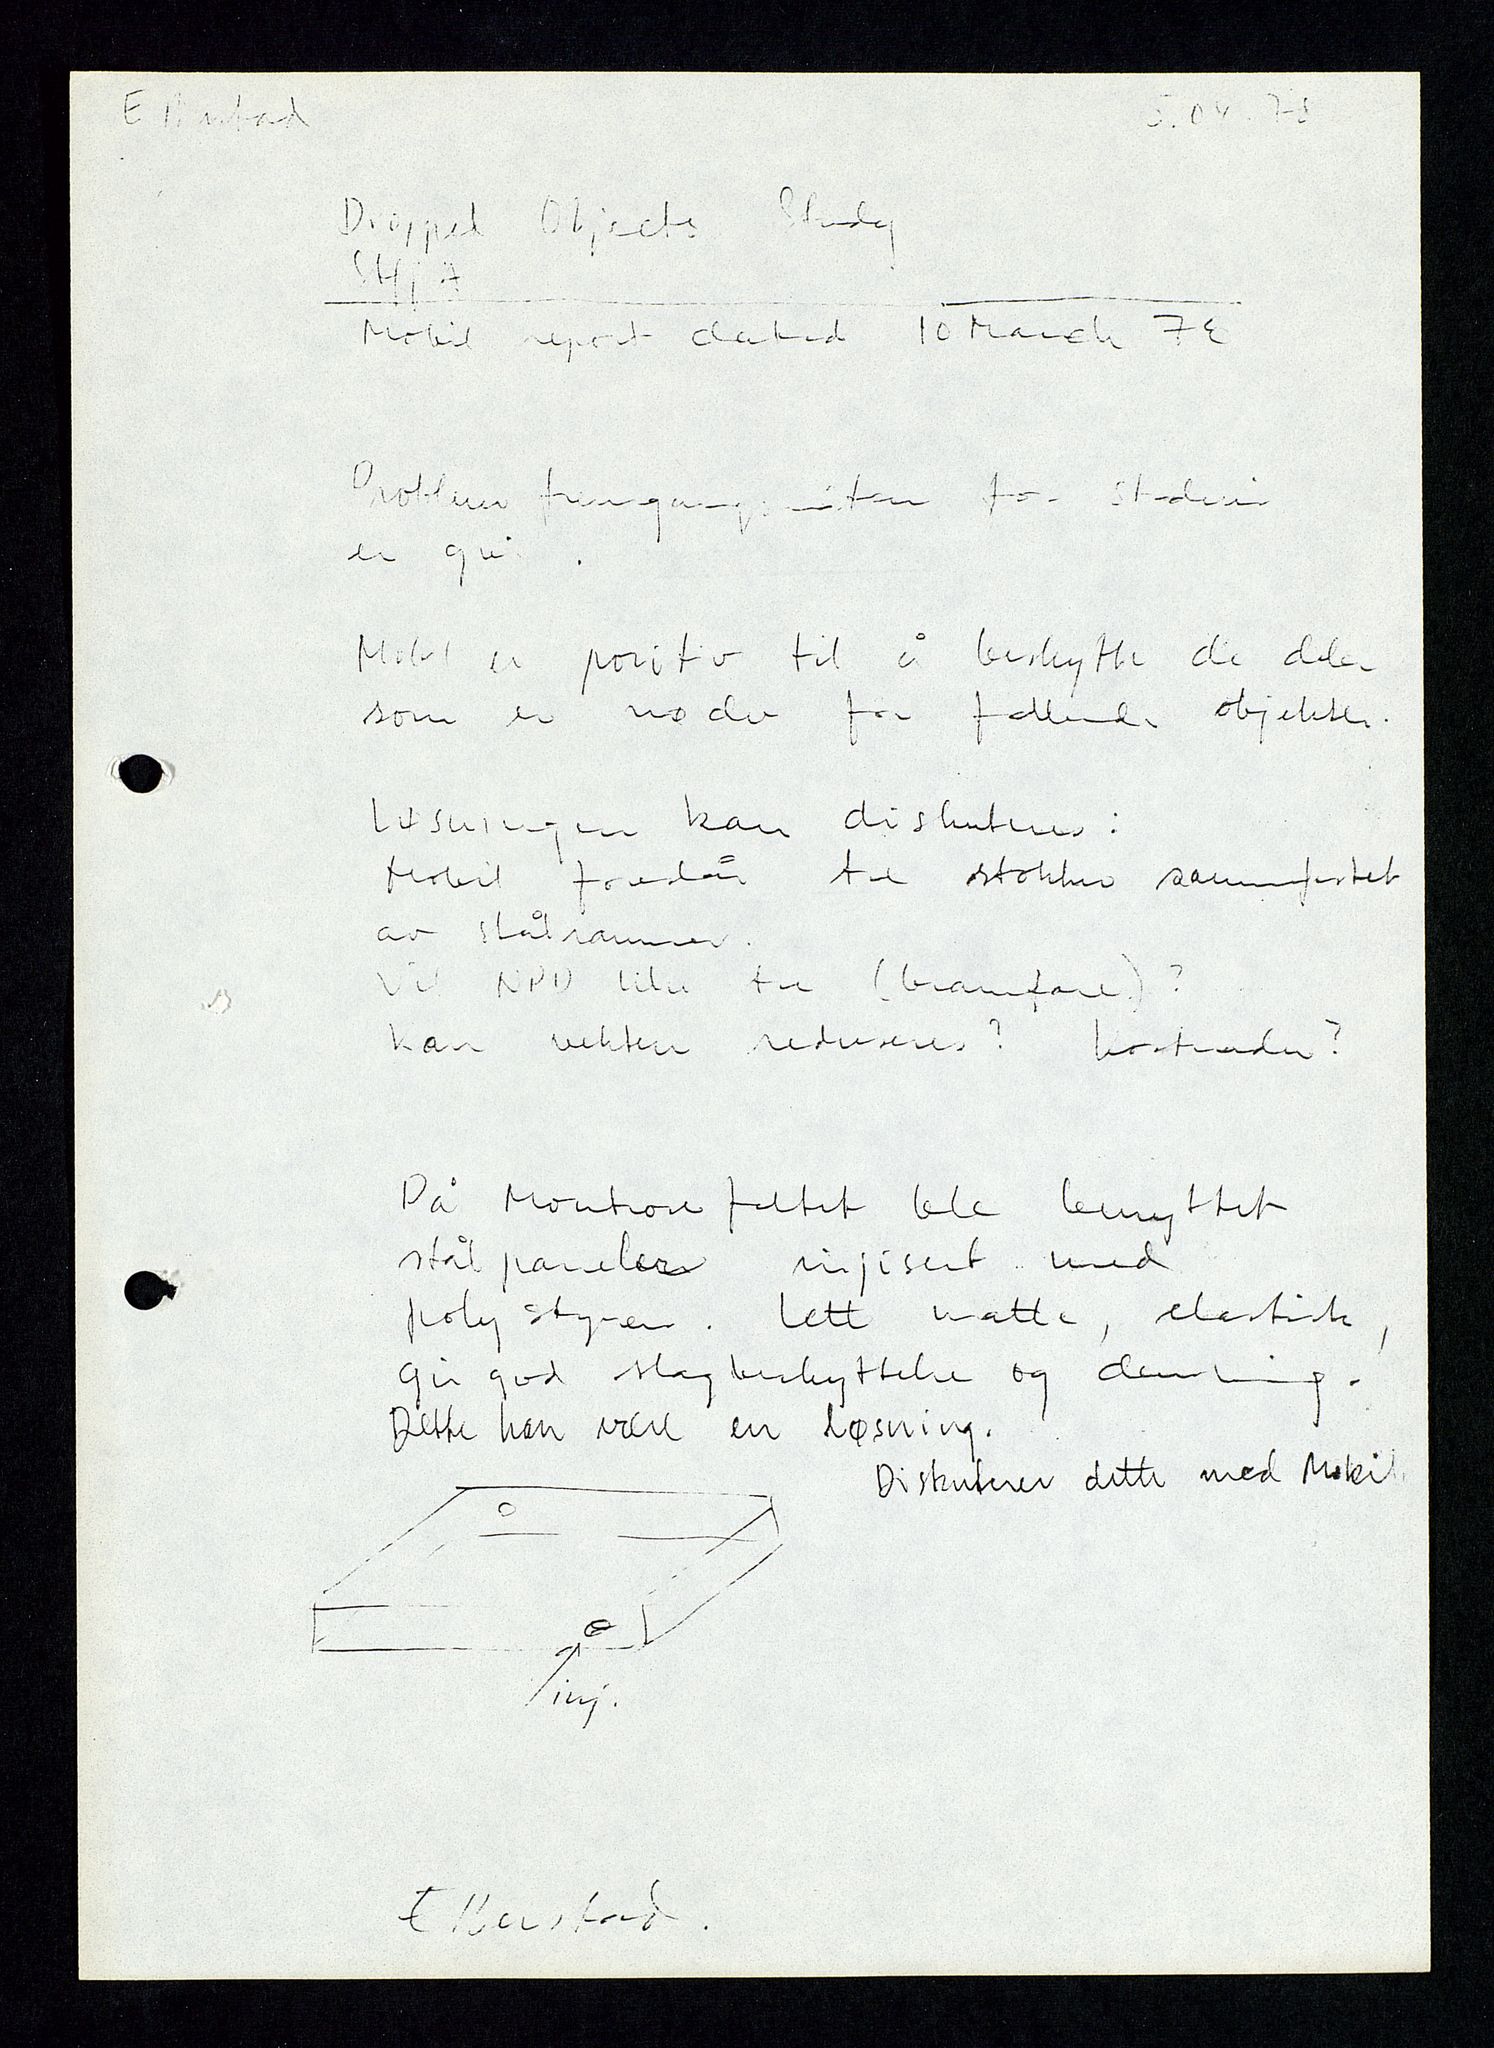 5.04.78
Dropped Objects Study
Mobil report dated 10 March 78
Problem for
er
Mobil er positiv til å beskytte de deler
som er for fallende objekter.
Løsningen kan diskuteres:
Mobil tre stokker sammenfestet
av stålrammer.
Vil NPD like tre (brannfare)?
kan vekten reduseres? kostnader?
På Montrose feltet ble benyttet
stål paneler injisert med
polystyren. Lett matte, elastisk,
Gir god slagbeskyttelse og demning.
Dette kan være en løsning.
Diskuterer dette med Mobil.
inj.